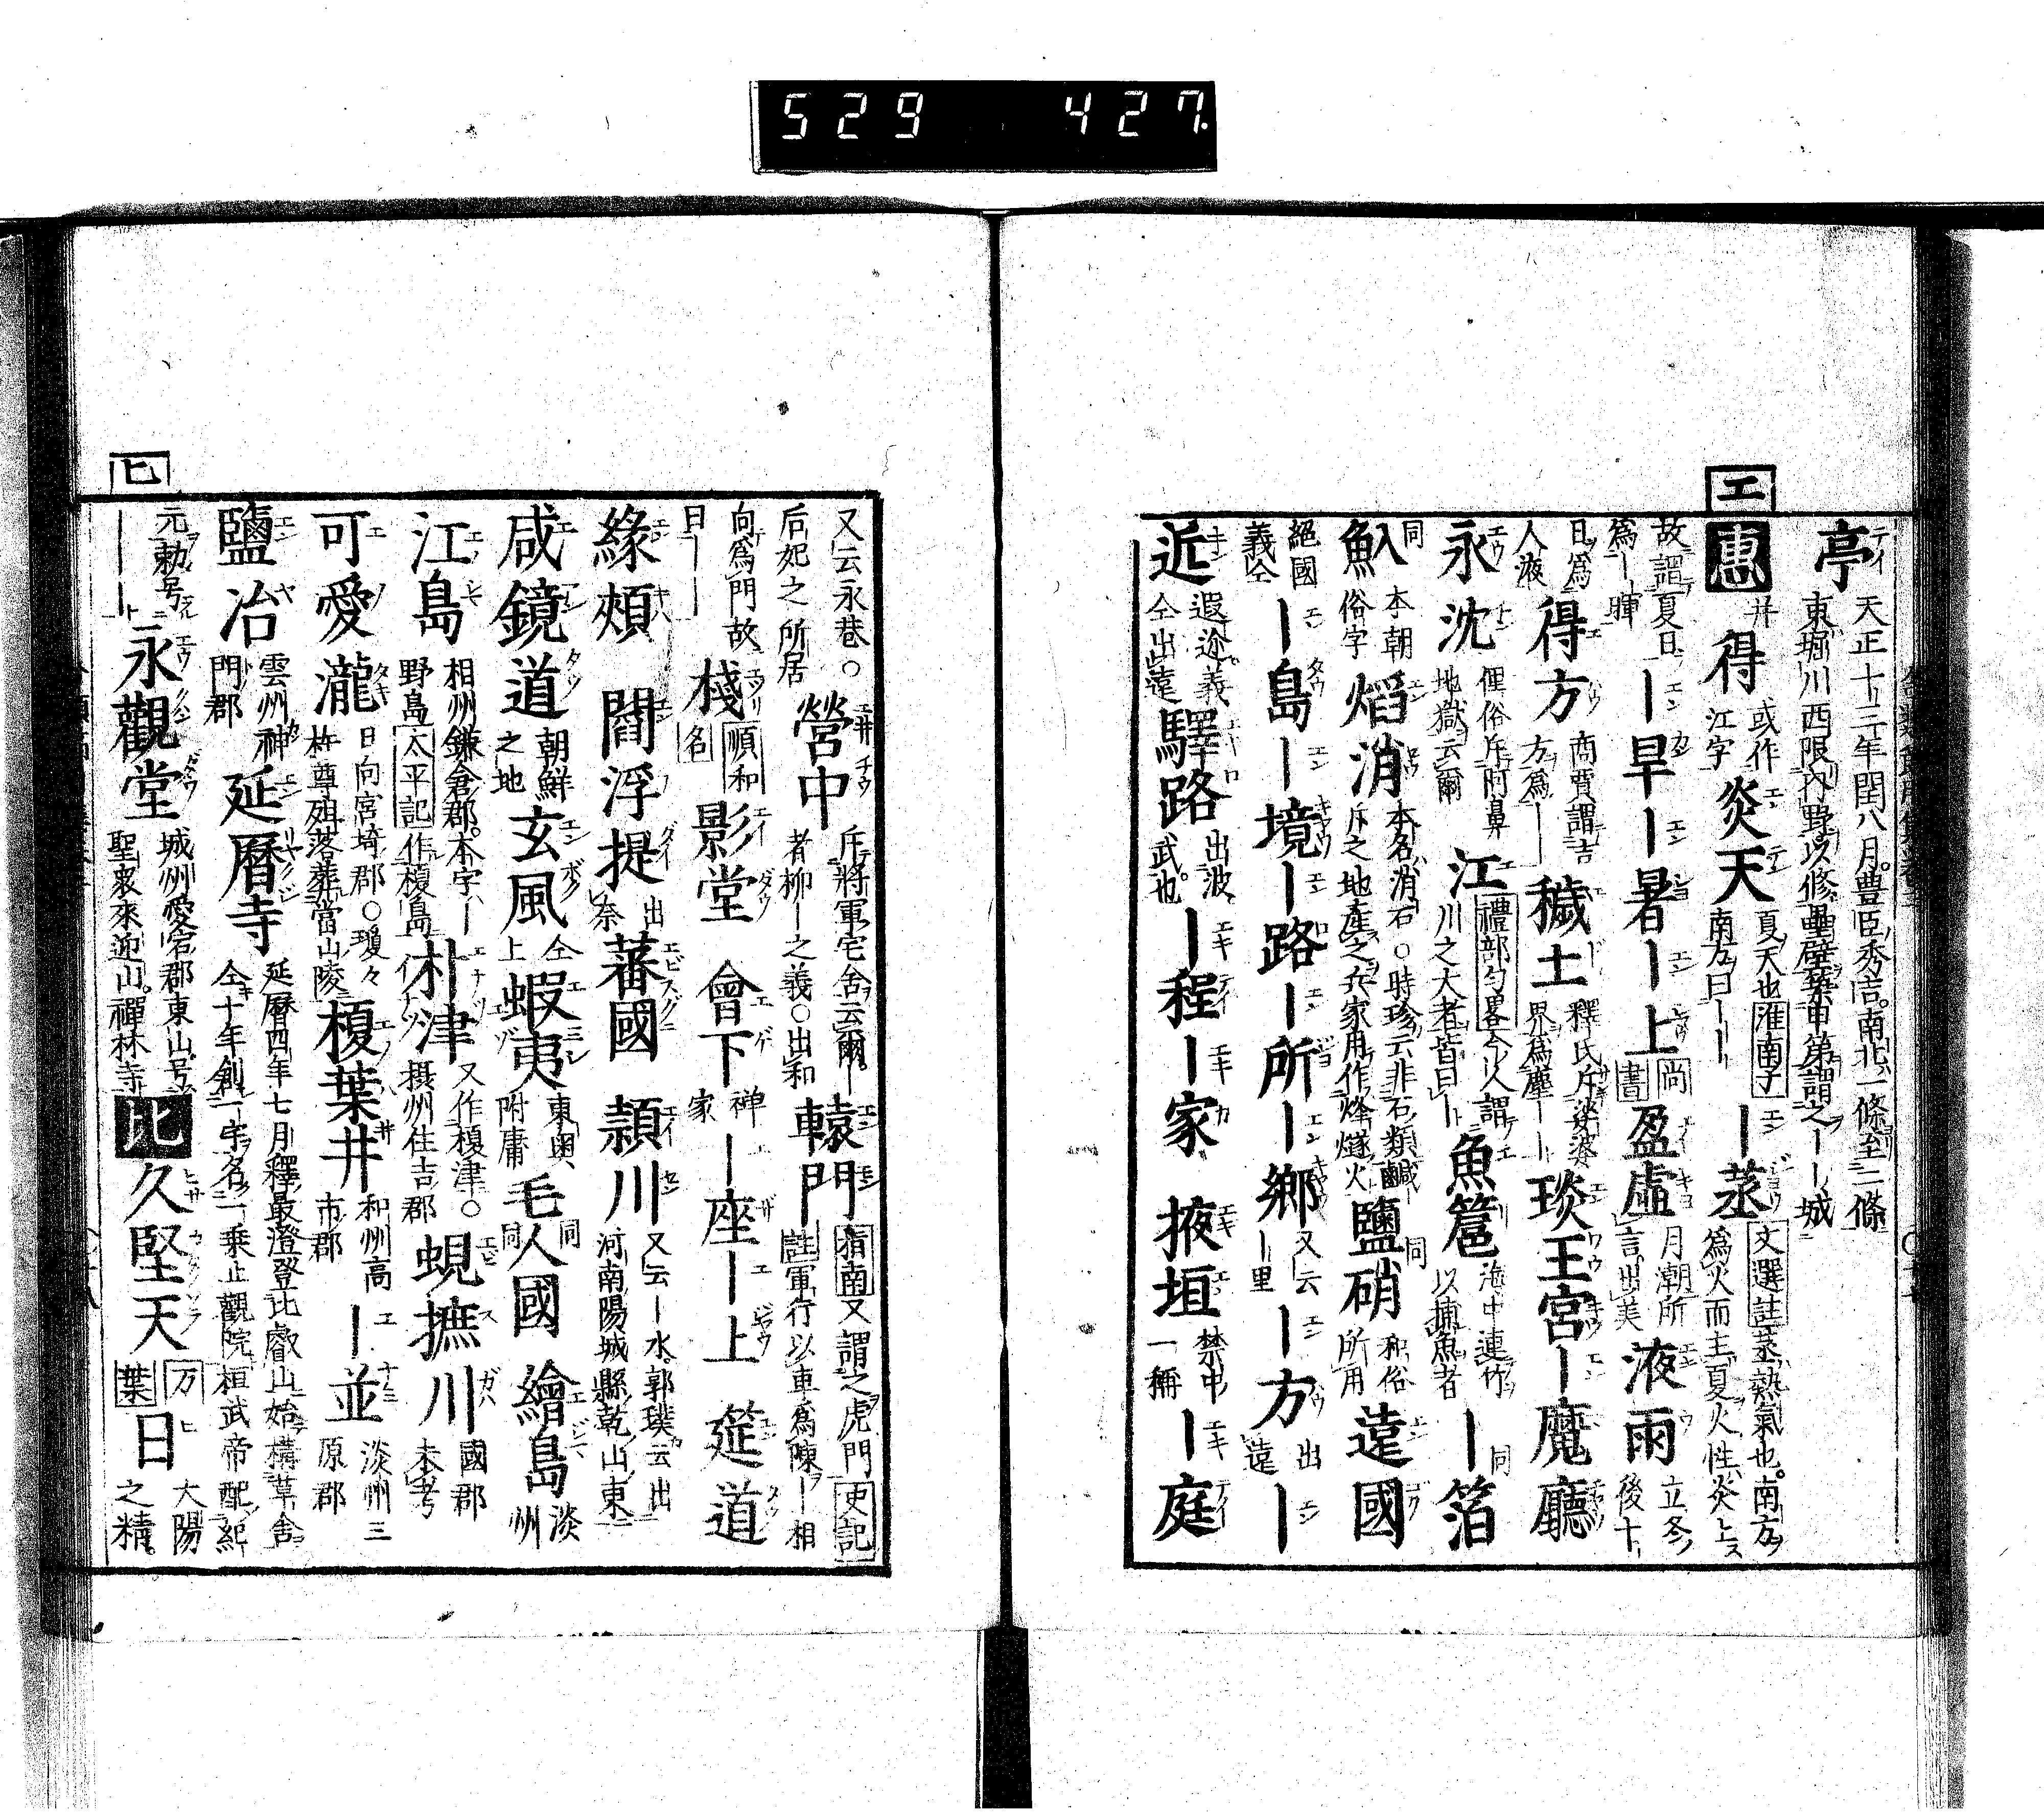 529 427.
エ
亭 天正十二年閏八月豊臣秀吉南北一條至二條
東堀川西限内野以修壘壁築甲第謂之——城
惠
得 或作江字
炎天 夏天也淮南子南方曰——
—蒸 文選註蒸熱氣也南方爲火而主夏火性炎上
故謂夏日爲—暉
—旱
—暑
—上 尚書
盈虚 月潮所言出美
液雨 立冬後十
日爲人液
得方 商賈謂吉方爲——
穢土 釋氏斥娑婆界爲塵——
琰王宮
—魔廳
永沈 俚俗斥阿鼻地獄云爾
江 禮部匀畧今人謂川之大者皆曰—
魚扈 海中連竹以捕魚者
—箔
魞 本朝俗字
焰消 本名消石○時珍云非石類鹹斥之地產之兵家用作烽燧火
鹽硝 和俗所用
遠國
絕國義仝
—島
—境
—路
—所
—鄉 又云—里
—方 出遠
—
近 遐迩義仝出遠
驛路 出波武也
—程
—家
掖垣 禁中一稱
—庭
ヒ
又云永巷○后妃之所居
營中 斥將軍宅舍云爾—者柳—之義○出和
轅門 指南又謂之虎門史記註軍行以車爲陳—相
向爲門故曰——
棧 順和名
影堂
會下 禅家
—座
—上
筵道
緣頰
閻浮提 出奈
蕃國
潁川 又云—水郭璞云出河南陽城縣乾山東
咸鏡道 朝鮮之地
玄風 仝上
蝦夷 東奥附庸
毛人國 同
繪島 淡州
江島 相州鎌倉郡本字—野島太平記作榎島
朴津 又作榎津○摂州住吉郡
蜆撫川 國郡未考
可愛瀧 日向宮埼郡○瓊々杵尊殂落葬當山陵
榎葉井 和州高市郡
—並 淡州三原郡
鹽冶 雲州神門郡
延曆寺 延曆四年七月釋最澄登比叡山始構草舍仝十年創一宇名一乗止觀院桓武帝配紀
元勅号———
永觀堂 城州愛宕郡東山号聖衆來迎山禪林寺
比
久堅天 万葉
日 大陽之精